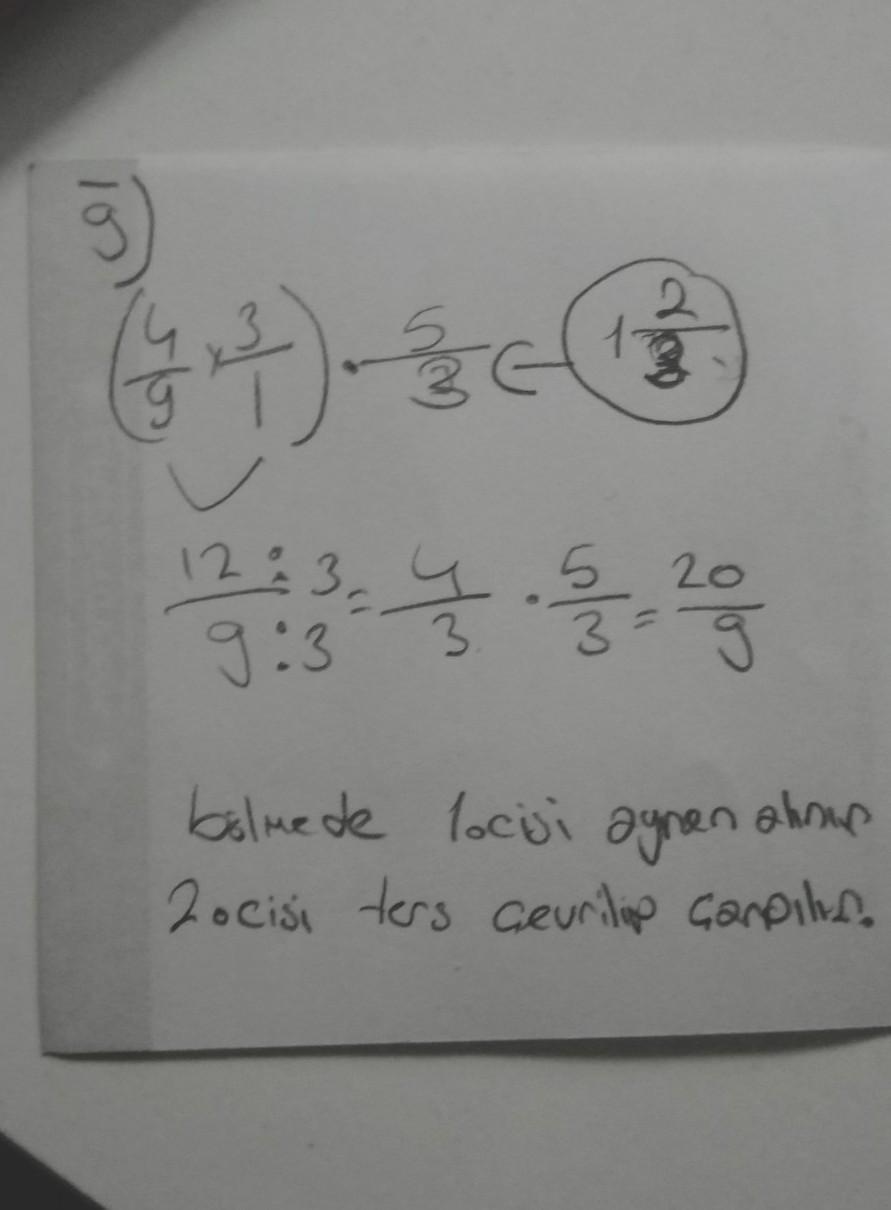 g)
(4/9 x 3/1) · 5/3 ← 1 2/3
12:3/9:3 = 4/3 · 5/3 = 20/9
bölmede 1.cisi aynen alınır
2.cisi ters çevrilip çarpılır.